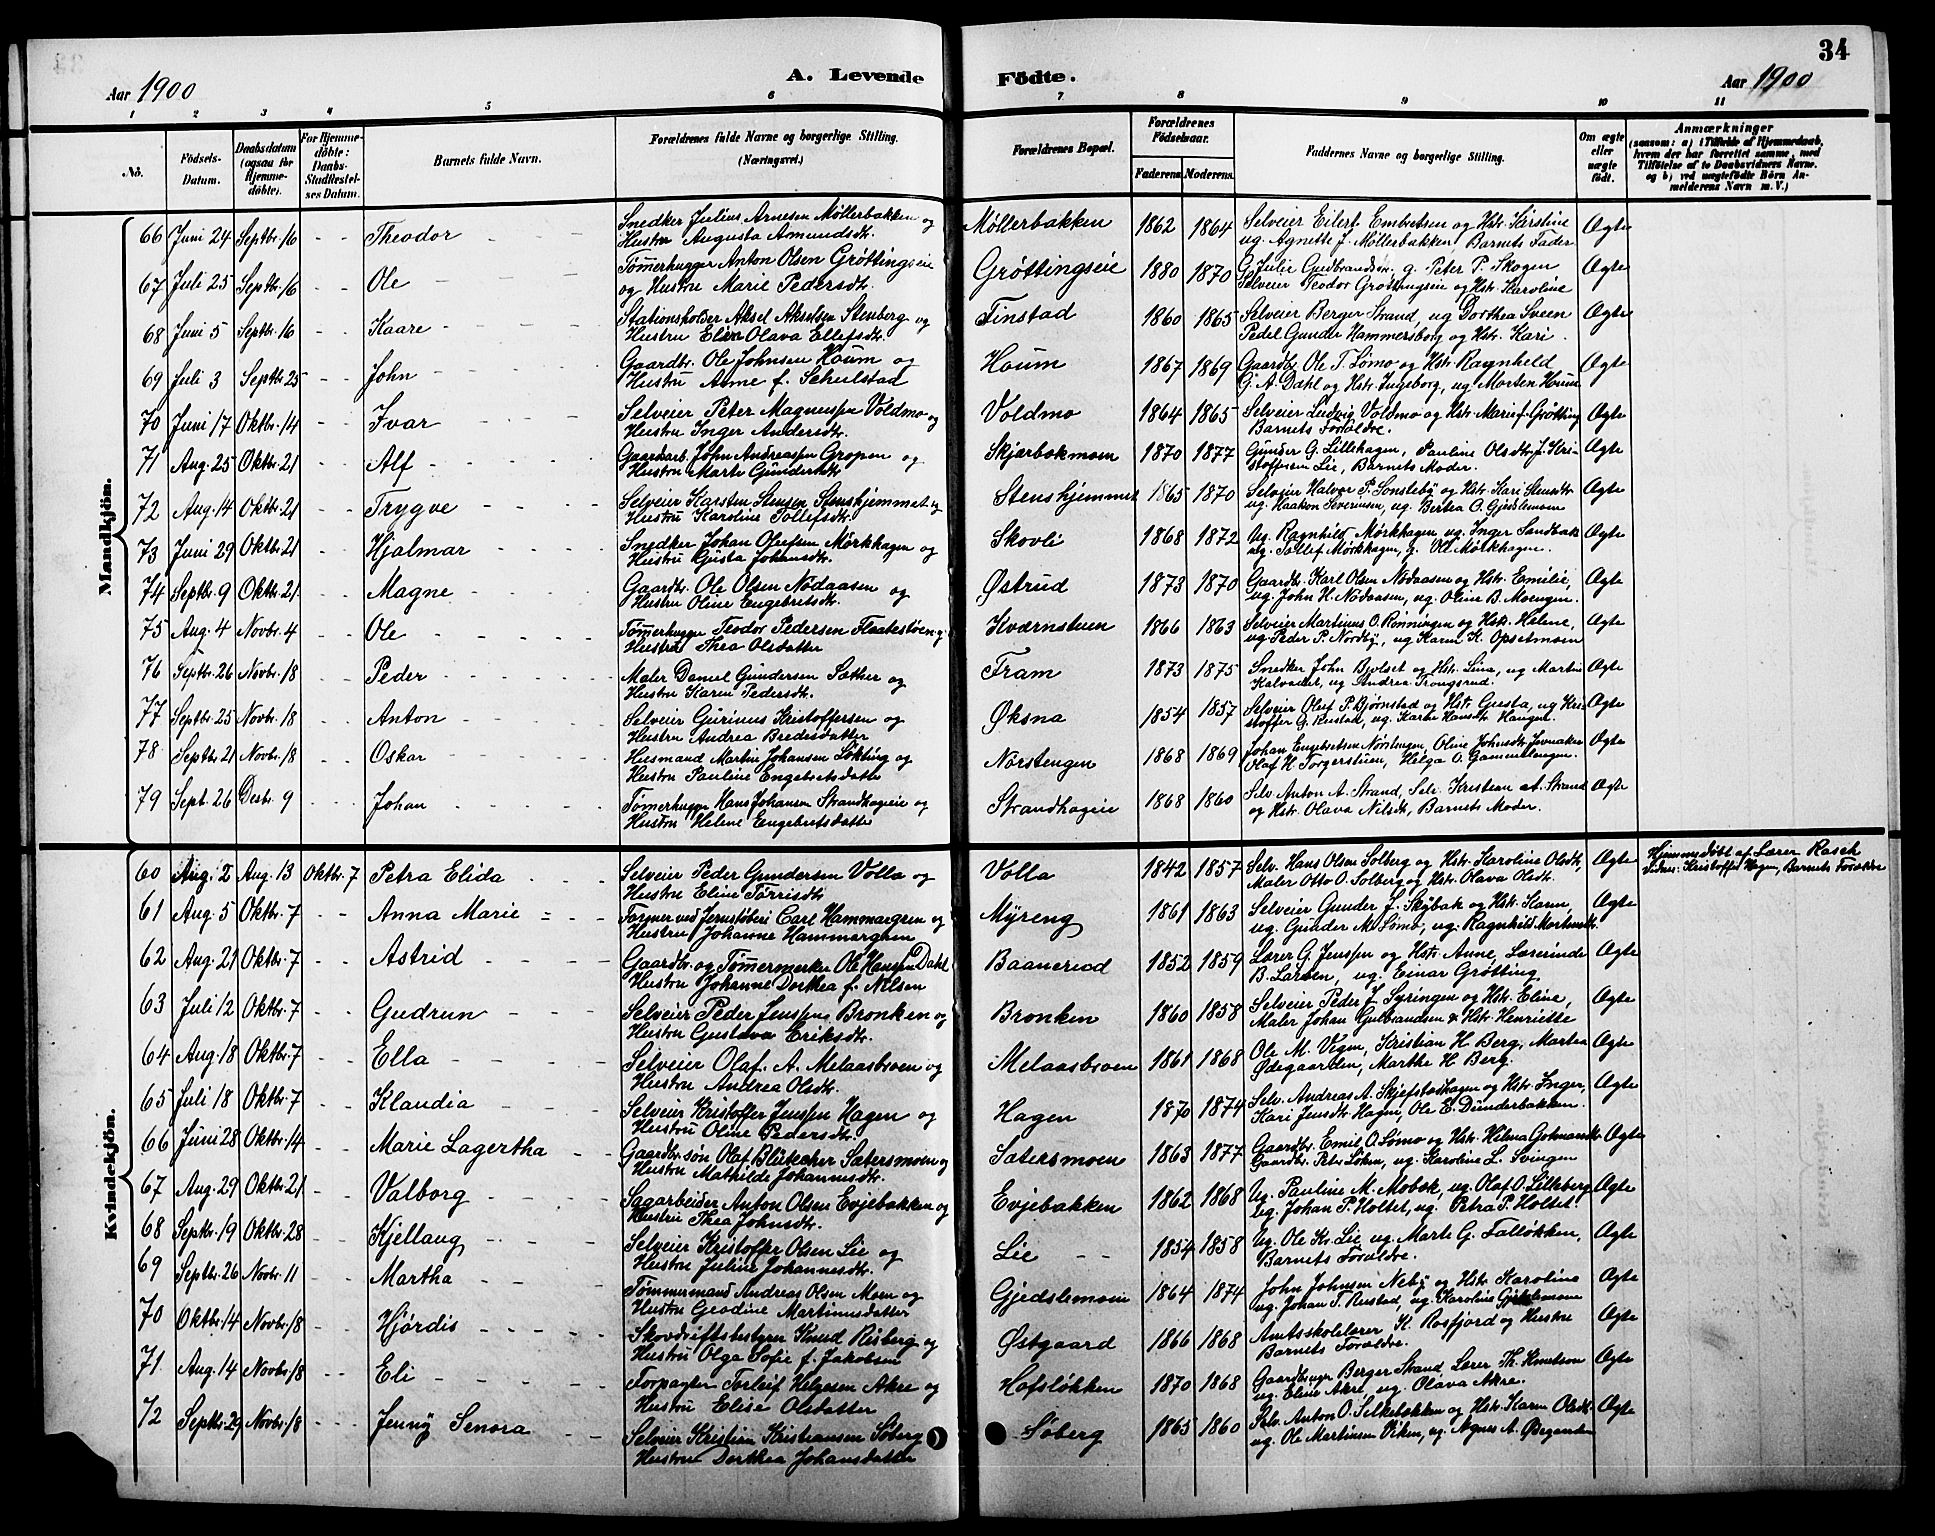 34
Aar 1900
A. Levende Födte.
Aar 1900
1 2 3 4 5 6 7 8 9 10 11
No.
Födsels-Datum.
Daabsdatum (ogsaa for Hjemme-döbte).
For Hjemme-döbte: Daabs-Stadfæstelses Datum.
Barnets fulde Navn.
Forældrenes fulde Navne og borgerlige Stilling. (Næringsvei.)
Forældrenes Bopæl.
Forældrenes Födselsaar.
Faderens. Moderens.
Faddernes Navne og borgerlige Stilling.
Om ægte eller uægte födt.
Anmærkninger
(saasom: a) i Tilfælde af Hjemmedaab, hvem der har forrettet samme, med Tilföielse af to Daabsvidners Navne. og b) ved uægtefödte Börn Anmelderens Navn m. V.)
Mandkjön.
66 Juni 24 Septbr. 16 - - Theodor Snedker Julius Arnesen Møllerbakken og Hustru Augusta Amundsdtr. Møllerbakken 1862 1864 Selveier Eilert Embretsen og Hstr. Kirstine ug. Agnethe f. Møllerbakken Barnets Fader Ægte
67 Juli 25 Septbr. 16 - - Ole Tømerhugger Anton Olsen Grøttingseie og Hustru Marie Pedersdtr. Grøttingseie 1880 1870 G. Julie Gudbrandsdr. g. Peter P. Skogen Selveier Teodor Grøttingseie og Hstr. Karoline Ægte
68 Juni 5 Septbr. 16 - - Kaare Stationsholder Aksel Akselsen Stenberg og Hustru Elise Olava Ellefsdtr. Finstad 1860 1865 Selveier Berger Strand, ug Dorthea Sveen Pedel Gunder Hammersborg og Hstr. Kari. Ægte
69 Juli 3 Septbr. 25 - - John Gaardbr. Ole Johnsen Houm og Hustru Arne f. Schulstad Houm 1867 1869 Gaardbr. Ole T. Lømo og Hstr. Ragnheld G. A. Dahl og Hstr. Ingeborg, ug Morten Houm Ægte
70 Juni 17 Oktbr. 14 - - Ivar Selveier Peter Magnussen Voldmo og Hustru Inger Andersdtr. Voldmo 1864 1865 Selveier Ludvig Voldmo og Hstr. Marie f. Grøtting Barnets Forældre. Ægte
71 Aug. 25 Oktbr. 21 - - Alf Gaardarb. John Andreassen Gropen og Hustru Marte Gundersdtr. Skjærbækmoen 1870 1877 Gunder G. Lillehagen, Pauline Olsdtr. J. Kristoffersen Lie, Barnets Moder. Ægte
72 Aug. 14 Oktbr. 21 - - Trygve Selveier Karsten Stensen Stenshjemmet og Hustru Karoline Tollefsdtr. Stenshjemmet 1865 1870 Selveier Halvor P. Sonsteby og Hstr. Kari Stensdtr. ug. Haakon Severinsen, ug. Bertea O. Gjedslemoen Ægte
73 Juni 29 Oktbr. 21 - - Hjalmar Snedker Johan Olufsen Mørkhagen og Hustru Gusta Johansdtr. Skovli 1868 1872 Ug. Ragnhild Mørkhagen, ug. Inger Sandbak ug. Tollef Mørkhagen, g. Ole Mørkhagen. Ægte
74 Septbr. 9 Oktbr. 21 - - Magne Gaardbr. Ole Olsen Nødaasen og Hustru Oline Engebretsdtr. Østrud 1873 1870 Gaardbr. Karl Olsen Nødaasen og Hstr. Emilie, ug. John H. Nødaasen, ug. Oline B. Moengen. Ægte
75 Aug. 4 Novbr. 4 - - Ole Tømerhugger Teodor Pedersen Flaatestøen og Hustru Thea Olsdatter Kværnstuen 1866 1863 Selveier Martinus O. Rønningen og Hstr. Helene, ug Peder P. Nordby, ug Karen K. Opsetmoen Ægte
76 Septbr. 26 Novbr. 18 - - Peder Maler Daniel Gundersen Sæther og Hustru Karen Pedersdtr. Fram 1873 1875 Snedker John Bjølset og Hstr. Lina, ug Martin Kalvadet, ug Andrea Trongsrud. Ægte
77 Septbr. 25 Novbr. 18 - - Anton Selveier Gurinus Kristoffersen og Hustru Andrea Bredesdatter Øksna 1854 1857 Selveier Oluf P. Bjørnstad og Hstr. Gusta, ug Kristoffer G. Rustad, ug. Karen Hansdtr. Haugen. Ægte
78 Septbr. 21 Novbr. 18 - - Oskar Husmand Martin Johansen Løkting og Hustru Pauline Engebretsdatter Nørstengen 1868 1869 Johan Engebretsen Nørstengen, Oline Johnsdtr. Jevnaker Olaf H. Torgerstuen, Helga O. Gammelengen. Ægte
79 Sept. 26 Decbr. 9 - - Johan Tømerhugger Hans Johansen Strandhageie og Hustru Helene Engebretsdatter Strandhageie 1868 1860 Selv. Anton A. Strand, Selv. Kristian at. Strand og Hstr. Olava Nilsdtr, Barnets Moder. Ægte
Kvindekjön.
60 Aug. 2 Aug. 13 Oktbr. 7 Petra Elida Selveier Peder Gundersen Volla og Hustru Eline Tørrisdtr. Volla 1842 1857 Selv. Hans Olsen Solberg og Hstr. Karoline Olsdtr, Maler Otto O. Solberg og Hstr. Olava Olsdtr. Ægte Hjemmedøbt af Lærer Rasch Vidner: Kristoffer Hagen, Barnets Forældre
61 Aug. 5 Oktbr. 7 - - Anna Marie Former ved Jernstøberi Carl Hammargren og Hustru Johanne Hammargren Myreng 1861 1863 Selveier Gunder f. Skybak og Hstr. Karen ug. Gunder M. Lømo, ug. Ragnhild Mortensdtr. Ægte
62 Aug. 21 Oktbr. 7 - - Astrid Gaardbr. og Tømermerker Ole Hansen Dahl Hustru Johanne Dorthea f. Nilsen Baanerud 1852 1859 Lærer G. Jenssen og Hstr. Anne, Lærerinde B. Larsen, ug. Einar Grøtting Ægte
63 Juli 12 Oktbr. 7 - - Gudrun Selveier Peder Jenssen Bronken og Hustru Gustava Eriksdtr. Bronken 1860 1858 Selveier Peder J. Syringen og Hstr. Eline, Maler Johan Gulbrandsen & Hstr. Henriette Ægte
64 Aug. 18 Oktbr. 7 - - Ella Selveier Olaf. A. Melaasbroen og Hustru Andrea Olsdtr. Melaasbroen 1861 1868 Ole M. Vigen, Kristian H. Berg, Martea Ødegaarden, Marthe H. Berg. Ægte
65 Juli 18 Oktbr. 7 - - Klaudia Selveier Kristoffer Jenssen Hagen og Hustru Oline Pedersdtr. Hagen 1870 1874 Selv. Andreas A. Skjefstadhagen og Hstr. Inger, Kari Jensdtr. Hagen, Ole E. Dunderbakken. Ægte
66 Juni 28 Oktbr. 14 - - Marie Lagertha Gaardbr. søn Olaf Blutecher Sætersmoen og Hustru Mathilde Johannesdtr. Sætersmoen 1863 1877 Gaardbr. Emil O. Lømo og Hstr. Helena Gotmansdtr. Gaardbr. Peter Løken, ug. Karoline L. Svingen Ægte
67 Aug. 29 Oktbr. 21 - - Valborg Sagarbeider Anton Olsen Evjebakken og Hustru Thea Johnsdtr. Evjebakken 1862 1868 Ug. Pauline M. Mobæk, ug. Olaf O. Lilleberg ug. Johan P. Holtet, ug. Petra P. Holtet. Ægte
68 Septbr. 19 Oktbr. 28 - - Kjellaug Selveier Kristoffer Olsen Lie og Hustru Juline Johannesdtr. Lie 1854 1858 Ug. Ole Kr. Lie ug. Marte G. Talløkken, Barnets Forældre. Ægte
69 Septbr. 26 Novbr. 11 - - Martha Tømmermand Andreas Olsen Moen og Hustru Geodine Martinusdatter Gjedslemoen 1864 1874 John Johnsen Neby og Hstr. Karoline ug. Johan T. Rustad, ug. Karoline Gjedslemoen Ægte
70 Oktbr. 14 Novbr. 18 - - Hjørdis Skovdriftsbestyrer Knud Risberg og Hustru Olga Sofie f. Jakobsen Østgaard 1866 1868 Amtsskolelærer K. Rosfjord og Hustru Barnets Forældre. Ægte
71 Aug. 14 Novbr. 18 - - Eli Forpagter Torleif Helgesen Akre og Hustru Elise Olsdatter Hofsløkken 1870 1868 Gaardbruger Berger Strand Lærer Th. Knutson ug. Eline Akre, ug. Olava Akre. Ægte
72 Septbr. 29 Novbr. 18 Jenny Senora Selveier Kristian Kristiansen Søberg Hustru Dorthea Johansdatter Søberg 1865 1860 Selv. Anton O. Silkebækken og Hstr. Karen Olsdtr. ug. Ole Martinsen Viken, ug. Agnes A. Ødegaarden Ægte